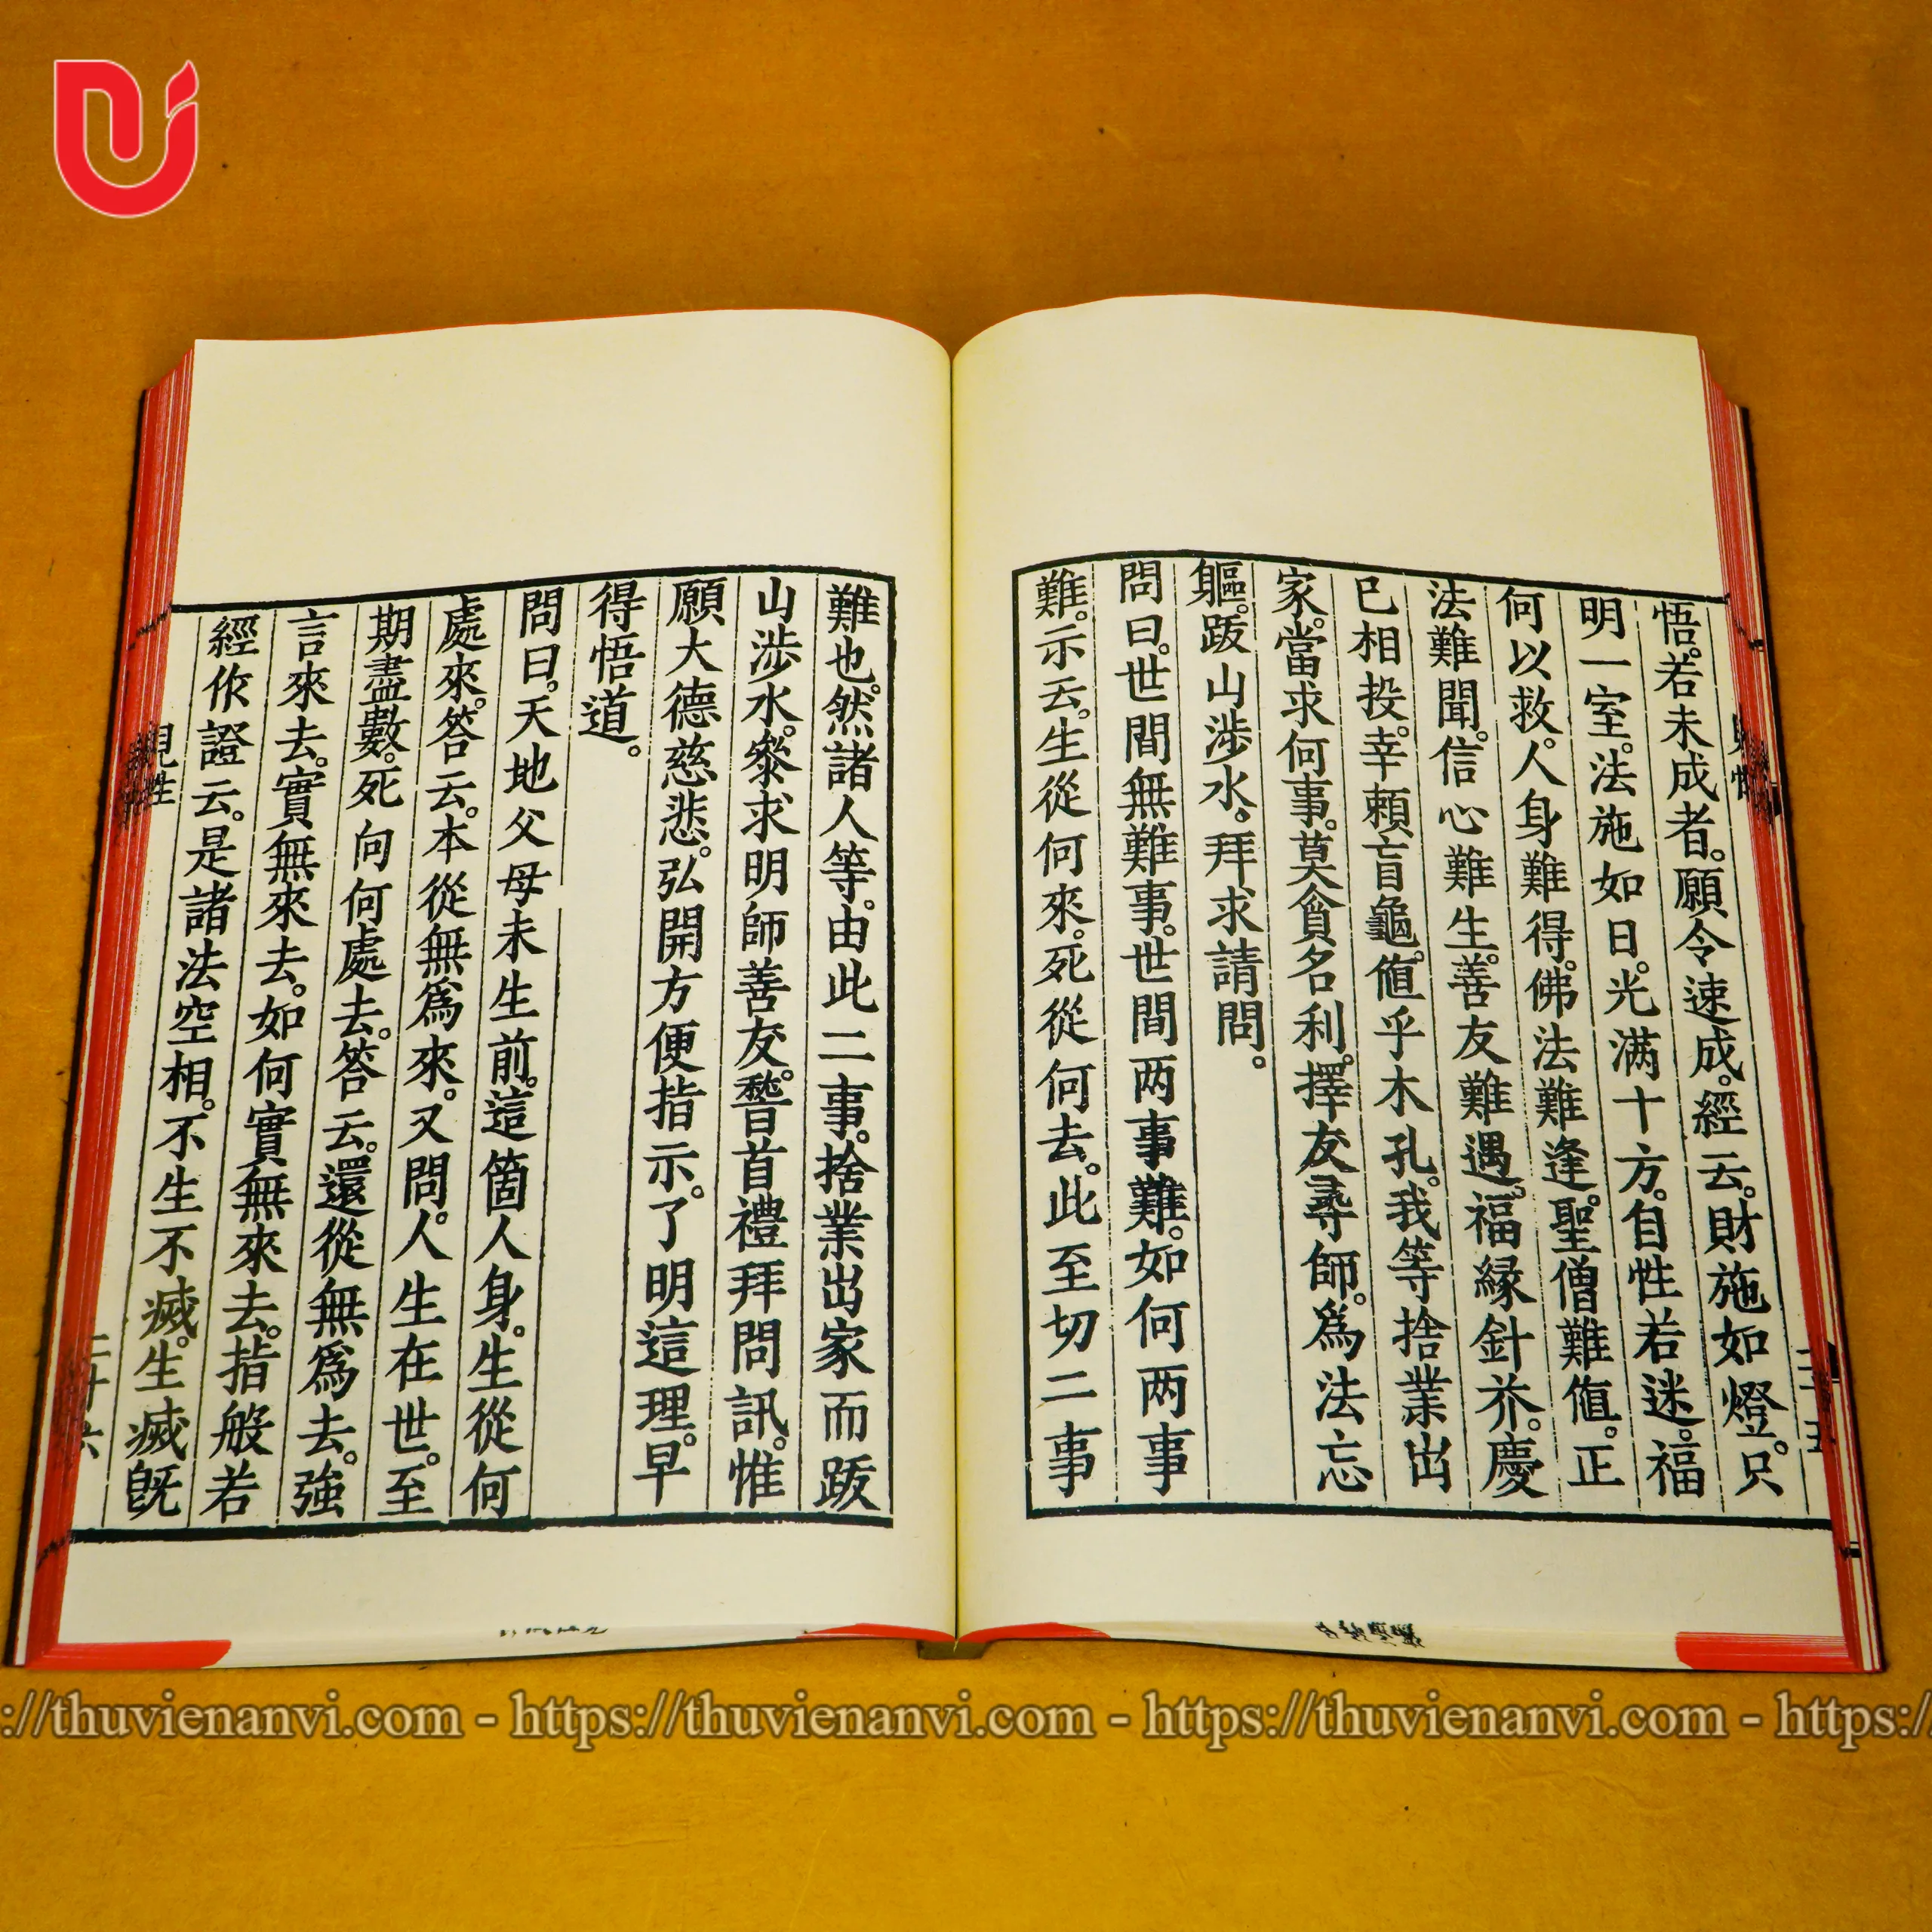 悟。若未成者。願令速成。經云。財施如燈。只
明一室。法施如日。光滿十方。自性若迷。福
何以救。人身難得。佛法難逢。聖僧難值。正
法難聞。信心難生。善友難遇。福緣針芥。慶
已相投。幸賴盲龜。值乎木孔。我等捨業出
家。當求何事。莫貪名利。擇友尋師。爲法忘
軀。跋山涉水。拜求請問。
問曰。世間無難事。世間两事難。如何两事
難。示云。生從何來。死從何去。此至切二事
難也。然諸人等。由此二事。捨業出家而跋
山涉水。叅求明師善友。稽首禮拜問訊。惟
願大德慈悲。弘開方便指示。了明這理。早
得悟道。
問曰。天地父母未生前。這箇人身。生從何
處來。答云。本從無爲來。又問。人生在世。至
期盡數。死向何處去。答云。還從無爲去。強
言來去。實無來去。如何實無來去。指般若
經作證云。是諸法空相。不生不滅。生滅既
見性
二十六
https://thuvienanvi.com - https://thuvienanvi.com - https://thuvienanvi.com - https://